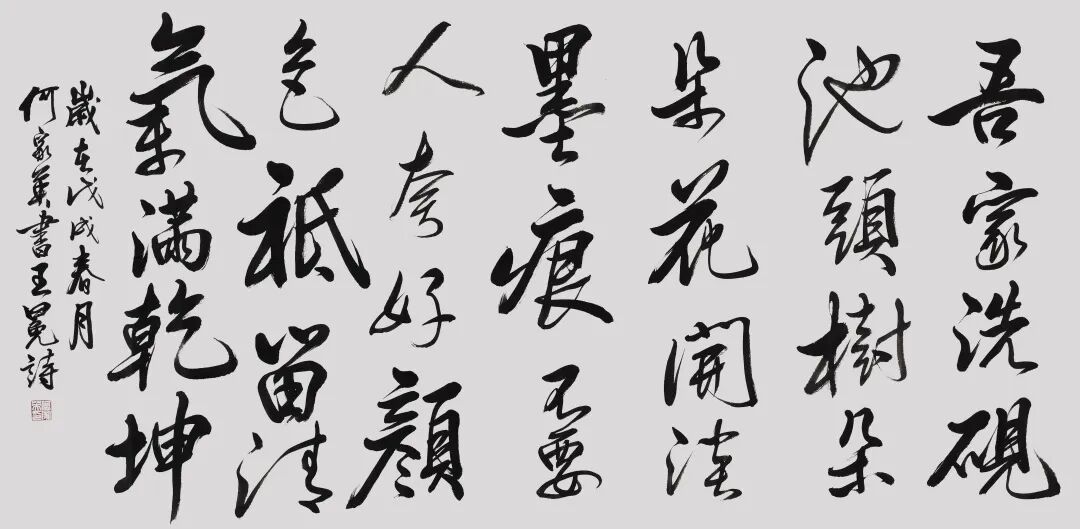 吾家洗硯
池頭樹朵
朵花開淡
墨痕不要
人夸好顏
色祗留清
氣滿乾坤
歲在戊戌春月
何家英書王冕詩